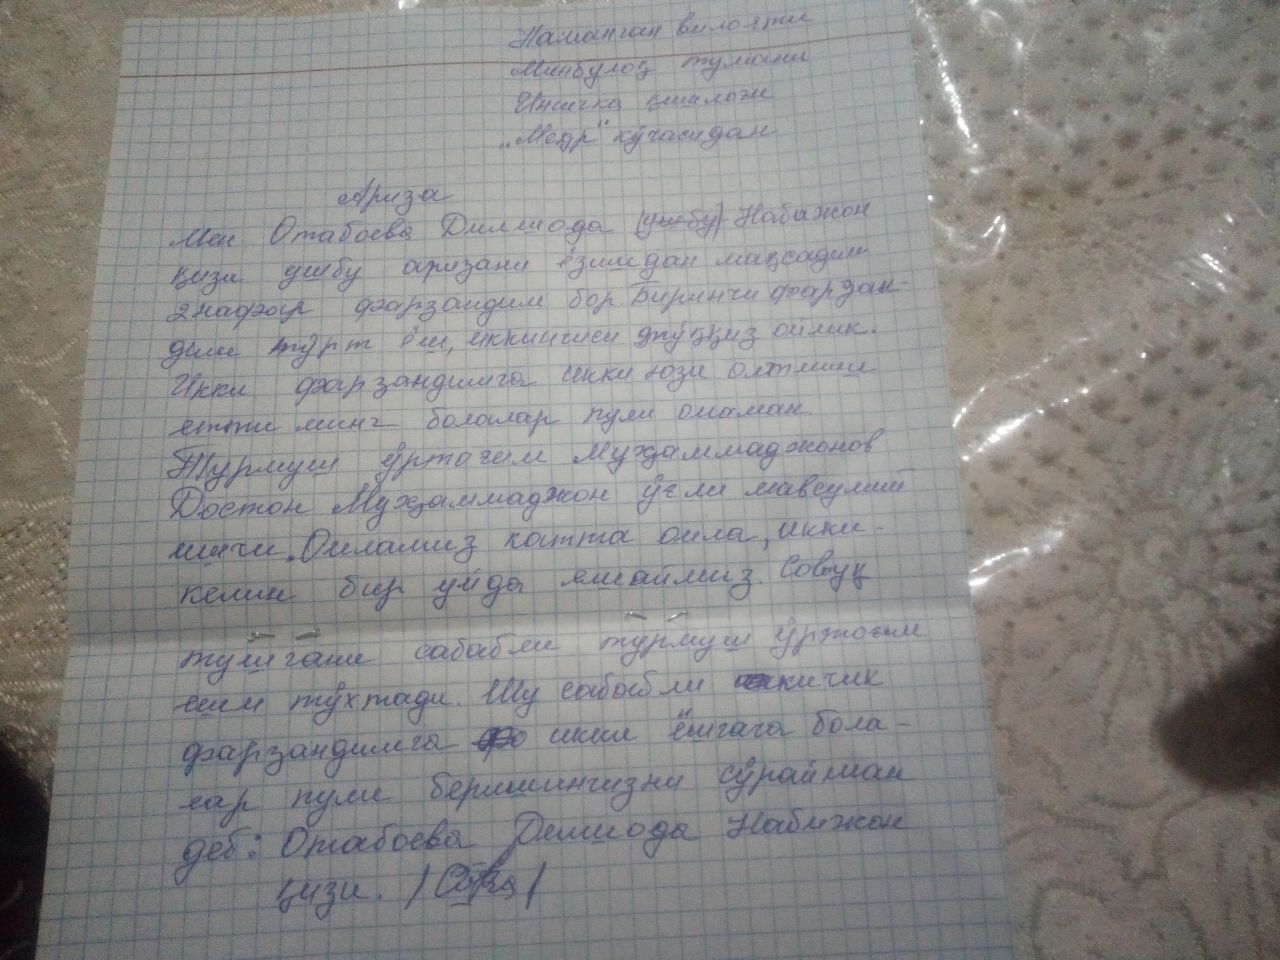 Наманган вилояти
Минбулоқ тумани
Инички қишлоғи
„Меҳр" кўчасидан
Ариза
Мен Отабоева Дилшода (ушбу) Набижон
қизи ушбу аризани ёзишдан мақсадим
2 нафар фарзандим бор. Биринчи фарзан-
дим тўрт ёш, иккинчиси тўққиз ойлик.
Икки фарзандимга икки юзи олтмиш
етти минг болалар пули оламан.
Турмуш ўртоғим Муҳаммаджонов
Достон Муҳаммаджон ўғли мавсумий
ишчи. Оиламиз катта оила, икки-
келин бир уйда яшаймиз. Совуқ
тушгани сабабли турмуш ўртоғим
иши тўхтади. Шу сабабли кичик
фарзандимга икки ёшгача бола-
лар пули беришингизни сўрайман
деб: Отабоева Дилшода Набижон
қизи.